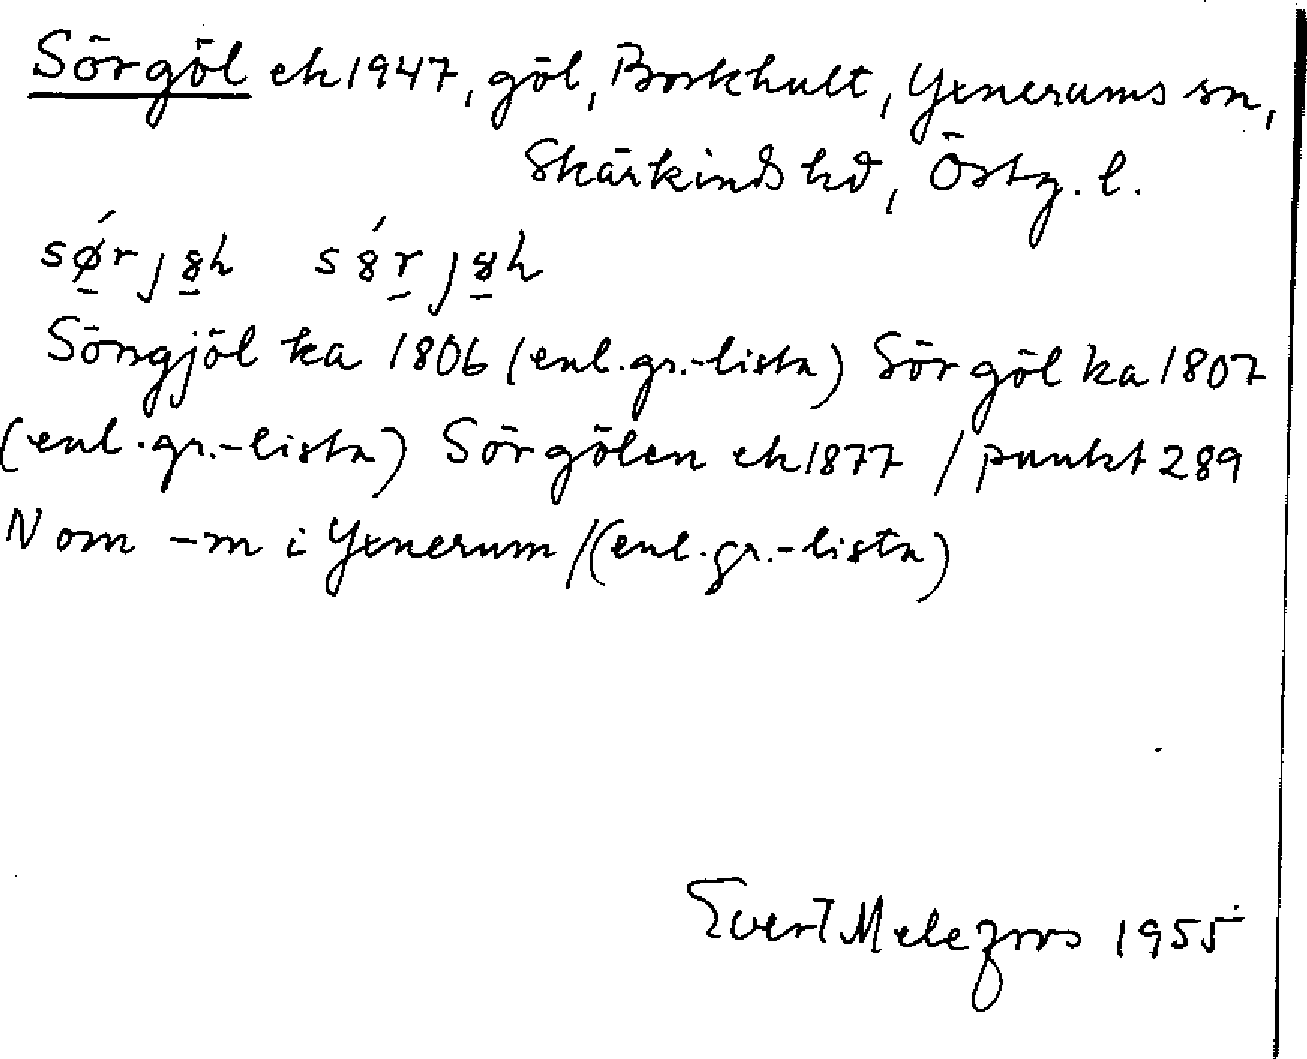 Sörgöl ek 1947, göl, Borkhult, Yxnerums sn,
Skärkinds hd, Östg. l.
sǿrjȣḷ sȣ́rjȣḷ
Sörsgjöl ka 1806 (enl. gr.-lista) Sörgöl ka 1807
(enl. gr.-lista) Sörgölen ek 1877 / punkt 289
Nom -m i Yxnerum / (enl. gr.-lista)
Evert Melefors 1955